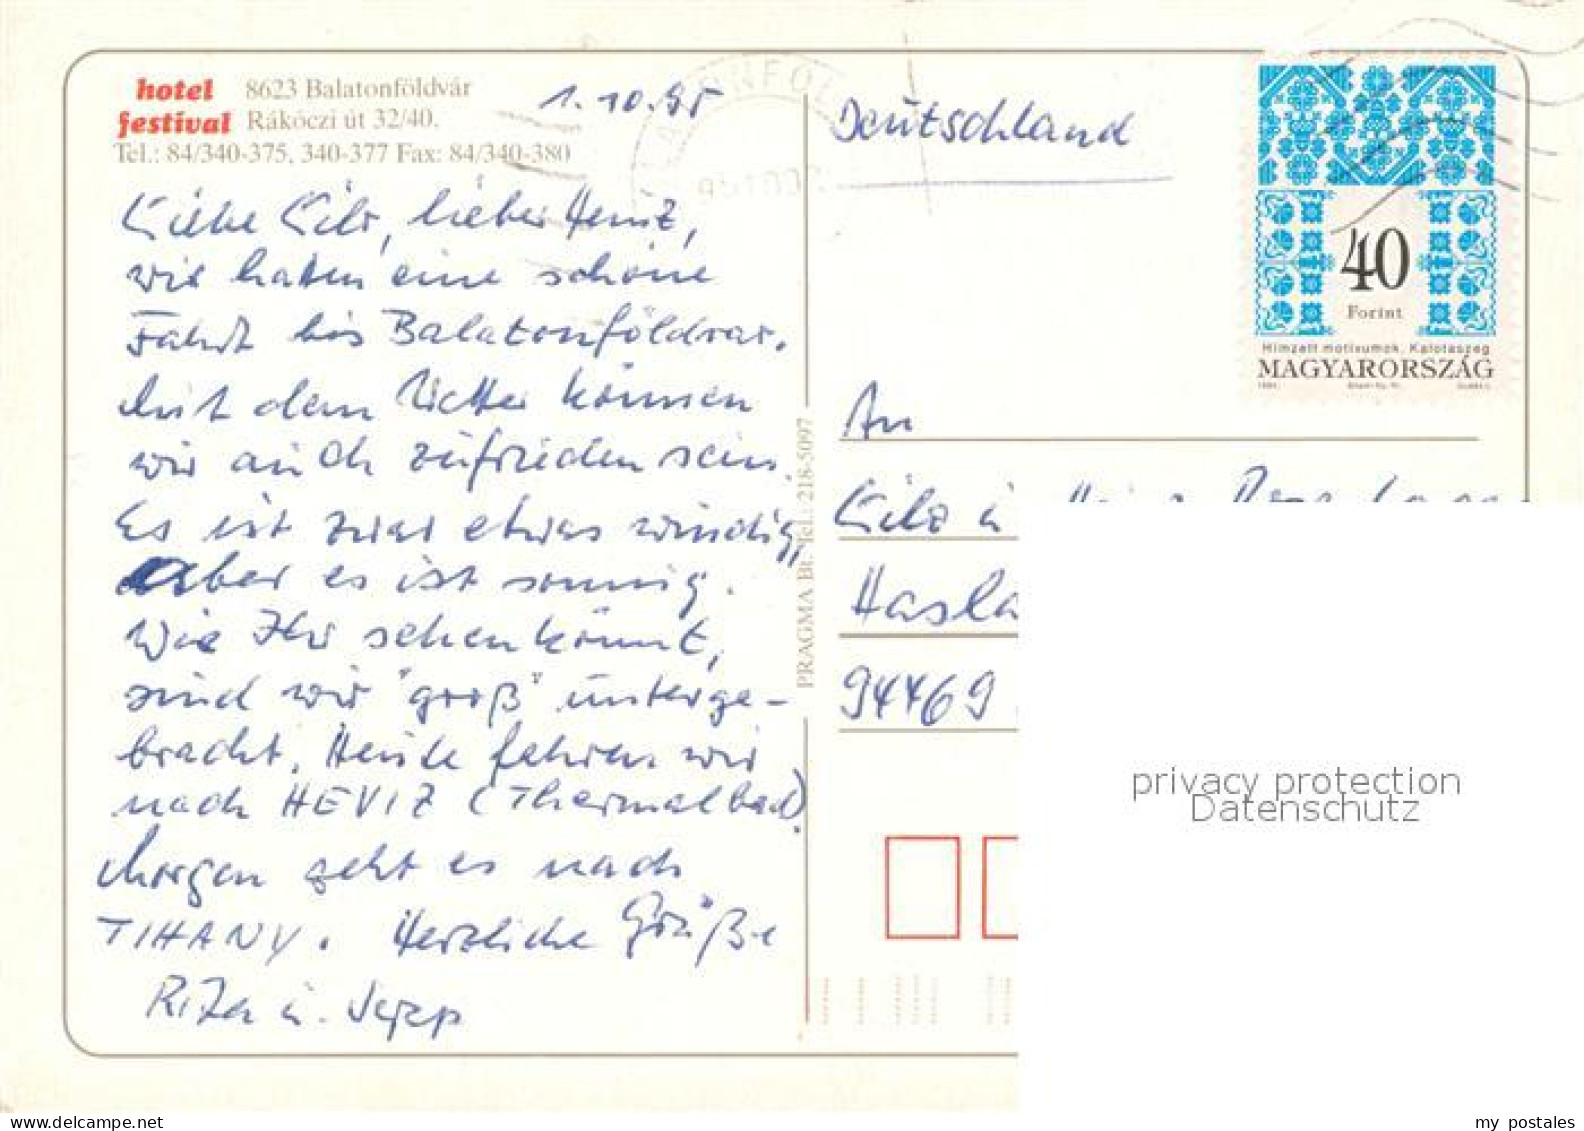 hotel festival
8623 Balatonföldvár
Rákóczi út 32/40.
Tel.: 84/340-375, 340-377 Fax: 84/340-380
1.10.95
Liebe Lilo, lieber Heinz,
wir hatten eine schöne
Fahrt bis Balatonföldvar.
Mit dem Wetter können
wir auch zufrieden sein.
Es ist zwar etwas windig,
aber es ist sonnig.
Wie Ihr sehen könnt,
sind wir "groß" unterge-
bracht. Heute fahren wir
nach HEVIZ (Thermalbad).
Morgen geht es nach
TIHANY. Herzliche Grüße
Rita u. Sepp
PRAGMA Bt. Tel.: 218-5097
Deutschland
40
Forint
Hímzett motívumok, Kalotaszeg
MAGYARORSZÁG
An
Lilo u
Hasla
94469
privacy protection
Datenschutz
my postales